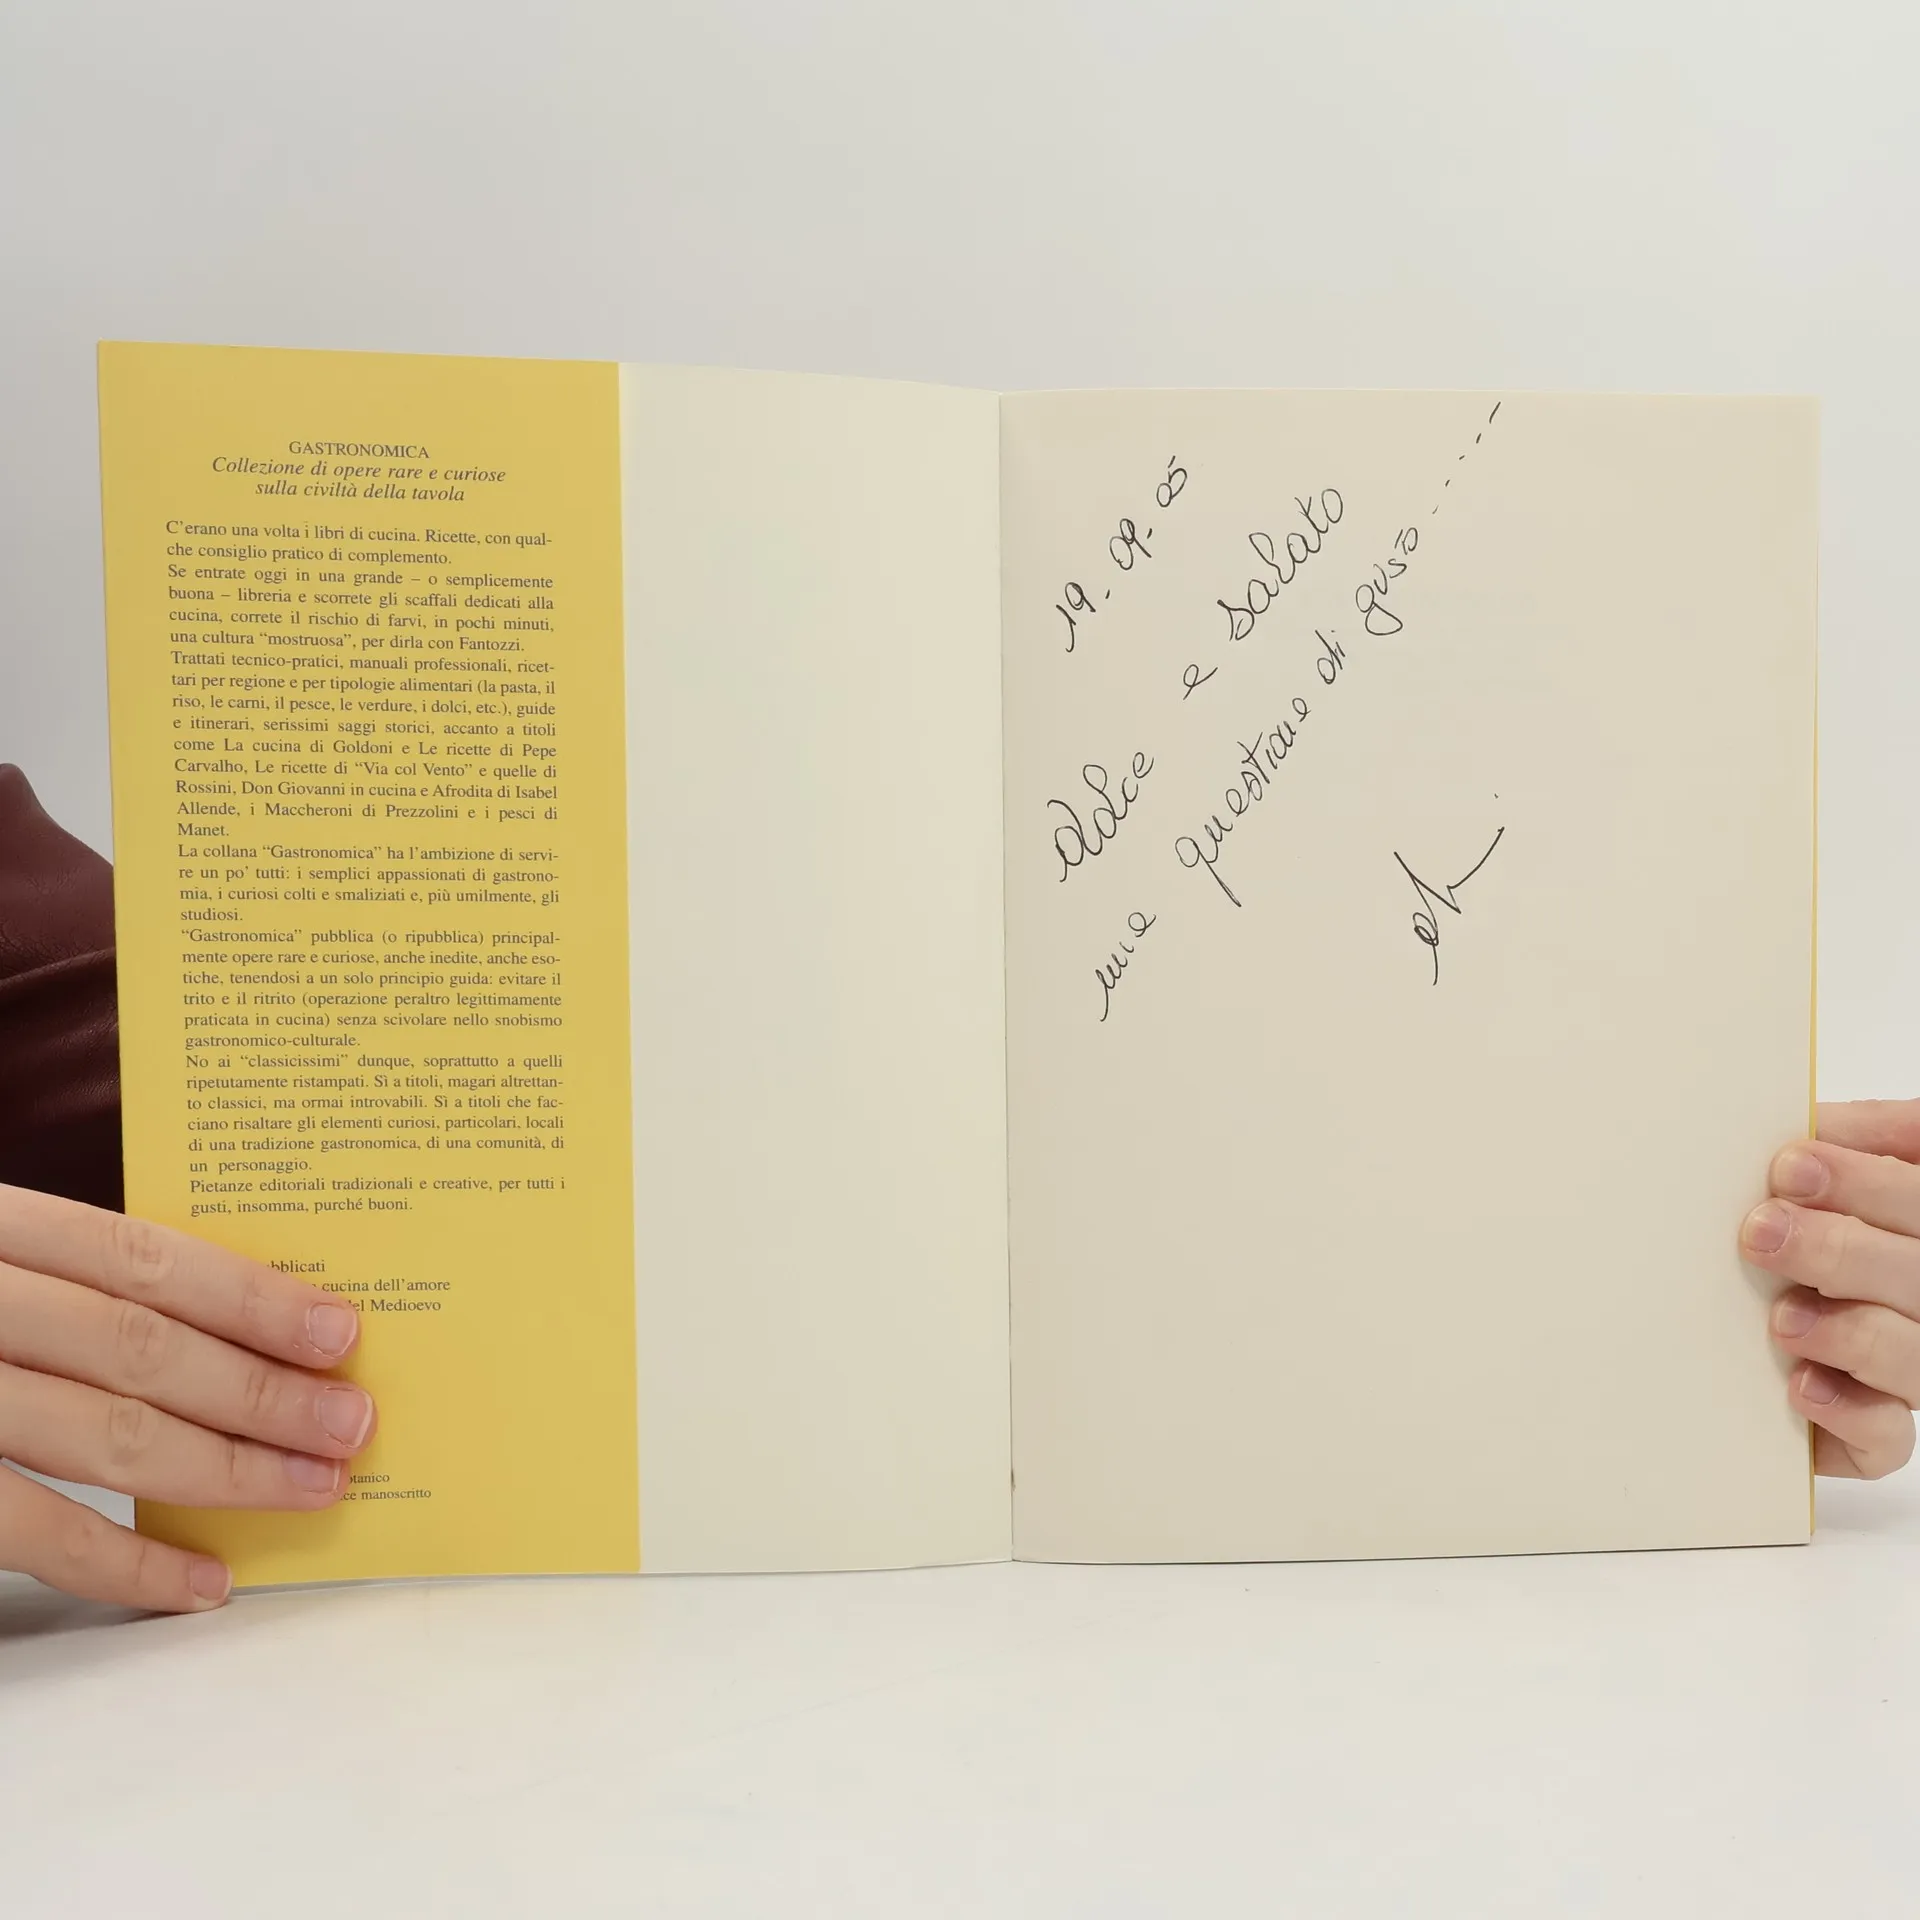 GASTRONOMICA
Collezione di opere rare e curiose
sulla civiltà della tavola
C'erano una volta i libri di cucina. Ricette, con qual-
che consiglio pratico di complemento.
Se entrate oggi in una grande – o semplicemente
buona – libreria e scorrete gli scaffali dedicati alla
cucina, correte il rischio di farvi, in pochi minuti,
una cultura "mostruosa", per dirla con Fantozzi.
Trattati tecnico-pratici, manuali professionali, ricet-
tari per regione e per tipologie alimentari (la pasta, il
riso, le carni, il pesce, le verdure, i dolci, etc.), guide
e itinerari, serissimi saggi storici, accanto a titoli
come La cucina di Goldoni e Le ricette di Pepe
Carvalho, Le ricette di "Via col Vento" e quelle di
Rossini, Don Giovanni in cucina e Afrodita di Isabel
Allende, i Maccheroni di Prezzolini e i pesci di
Manet.
La collana "Gastronomica" ha l'ambizione di servi-
re un po' tutti: i semplici appassionati di gastrono-
mia, i curiosi colti e smaliziati e, più umilmente, gli
studiosi.
"Gastronomica" pubblica (o ripubblica) principal-
mente opere rare e curiose, anche inedite, anche eso-
tiche, tenendosi a un solo principio guida: evitare il
trito e il ritrito (operazione peraltro legittimamente
praticata in cucina) senza scivolare nello snobismo
gastronomico-culturale.
No ai "classicissimi" dunque, soprattutto a quelli
ripetutamente ristampati. Sì a titoli, magari altrettan-
to classici, ma ormai introvabili. Sì a titoli che fac-
ciano risaltare gli elementi curiosi, particolari, locali
di una tradizione gastronomica, di una comunità, di
un personaggio.
Pietanze editoriali tradizionali e creative, per tutti i
gusti, insomma, purché buoni.
cucina dell'amore
Medioevo
manoscritto
19.09.05
dolce e salato
una questione di gusto